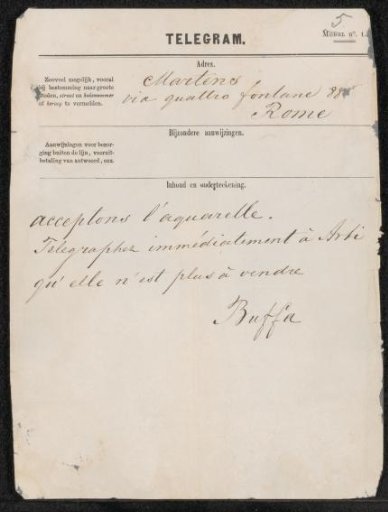 5
TELEGRAM.
Adres.
Zooveel mogelijk, vooral
bij bestemming naar groote
steden, straat en huisnommer
of beroep te vermelden.
Martens
via quattro fontane 88
Rome
Bijzondere aanwijzingen.
Aanwijzingen voor bezorging
buiten de lijn, vooruitbetaling
van antwoord, enz.
Inhoud en onderteekening.
acceptons l'aquarelle.
Telegraphez immédiatement à Arti
qu'elle n'est plus à vendre
Buffa